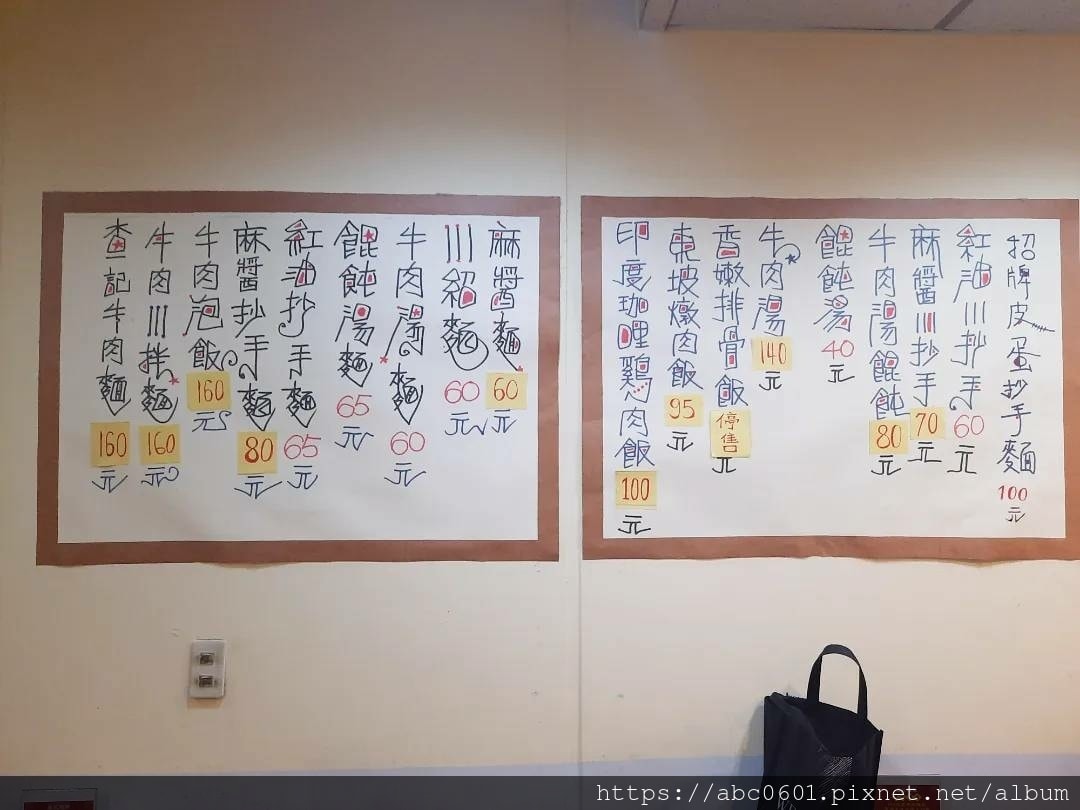 招牌皮蛋抄手麵 100元
紅油川抄手 60元
麻醬川抄手 70元
牛肉湯餛飩 80元
餛飩湯 40元
牛肉湯 140元
香嫩排骨飯 停售 元
東坡燉肉飯 95元
印度珈哩鷄肉飯 100元
麻醬麵 60元
川紹麵 60元
牛肉湯麵 60元
餛飩湯麵 65元
紅油抄手麵 65元
麻醬抄手麵 80元
牛肉泡飯 160元
牛肉川拌麵 160元
查記牛肉麵 160元
https://abc0601.pixnet.net/album